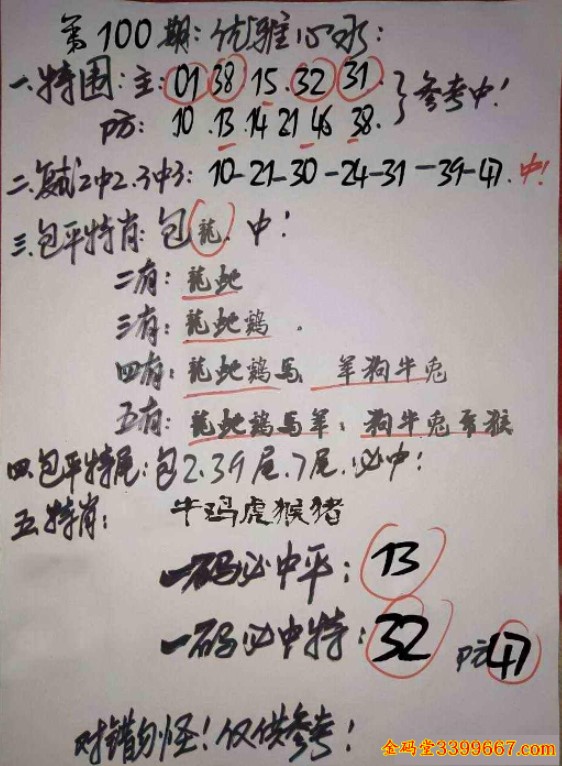 第100期:优雅心水:
一.特围:主:01 38 15.32 31.
防:10.13.14 21 46 38.
参考中!
二.复试2中2.3中3:10-21-30-24-31-39-47.中!
三.包平特肖:包龍.中!
二有:龍虵
三有:龍虵鷄。
四有:龍虵鷄馬、羊狗牛兔
五有:龍虵鷄馬羊:狗牛兔 猴
四.包平特尾:包2.3 9尾.7尾.必中!
五.特肖:牛鸡虎猴猪
一码必中平:13
一码必中特:32 防47
对错勿怪!仅供参考!
金码堂3399667.com